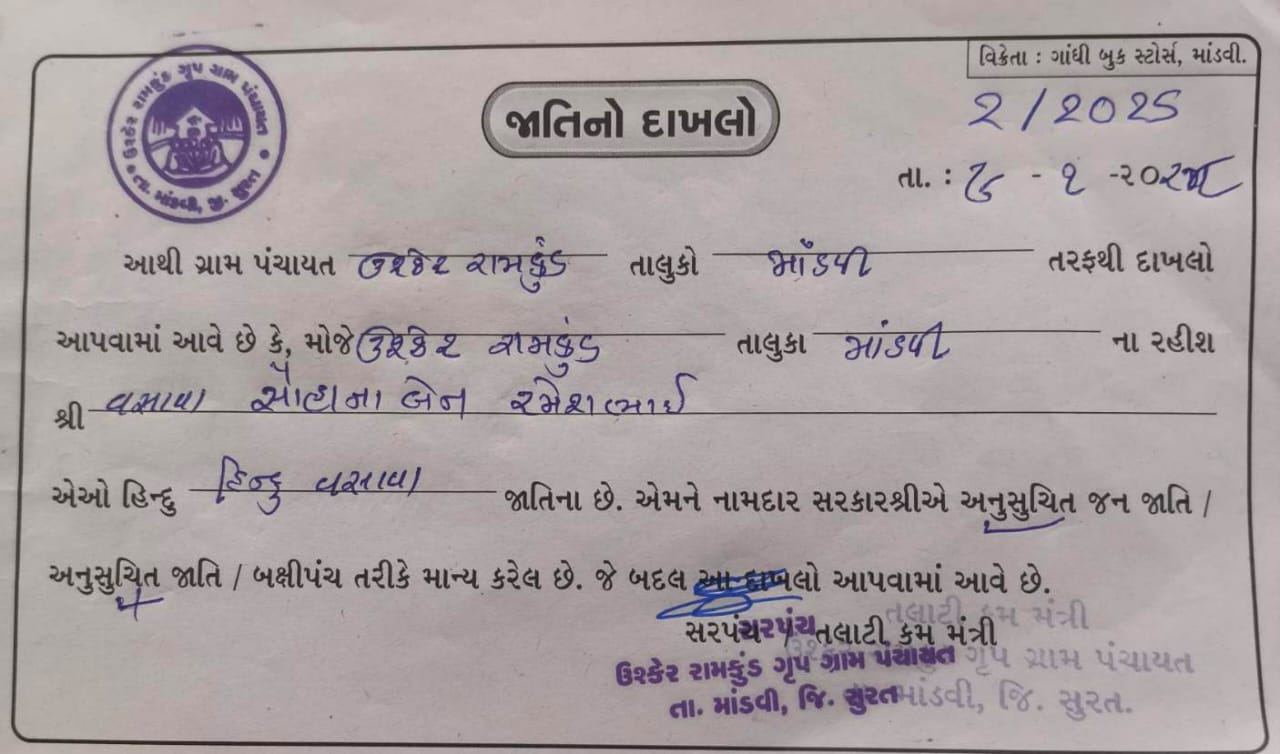 વિક્રેતા : ગાંધી બુક સ્ટોર્સ, માંડવી.
ઉશ્કેર રામકુંડ ગૃપ ગ્રામ પંચાયત
તા. માંડવી, જી. સુરત
જાતિનો દાખલો
2/2025
તા. : - ૧ -૨૦૨૫
આથી ગ્રામ પંચાયત ઉશ્કેર રામકુંડ તાલુકો માંડવી તરફથી દાખલો
આપવામાં આવે છે કે, મોજે ઉશ્કેર રામકુંડ તાલુકા માંડવી ના રહીશ
શ્રી વસાવા બેન રમેશભાઈ
એઓ હિન્દુ હિન્દુ વસાવા જાતિના છે. એમને નામદાર સરકારશ્રીએ અનુસુચિત જન જાતિ /
અનુસુચિત જાતિ / બક્ષીપંચ તરીકે માન્ય કરેલ છે. જે બદલ આ દાખલો આપવામાં આવે છે.
સરપંચ / તલાટી કમ મંત્રી
સરપંચ
ઉશ્કેર રામકુંડ ગૃપ ગ્રામ પંચાયત
તા. માંડવી, જિ. સુરત
તલાટી કમ મંત્રી
ગૃપ ગ્રામ પંચાયત
માંડવી, જિ. સુરત.